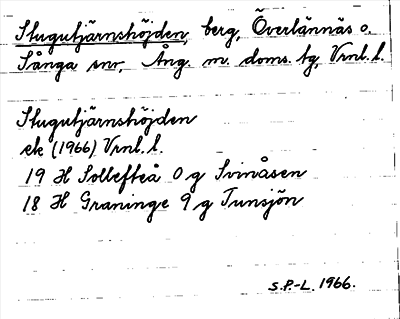 Stugutjärnshöjden, berg, Överlännäs o.
Sånga snr, Ång. m. doms. tg, Vrnl. l.
Stugutjärnshöjden
ek (1966) Vrnl. l.
19 H Sollefteå 0 g Svinåsen
18 H Graninge 9 g Tunsjön
S.P-L. 1966.